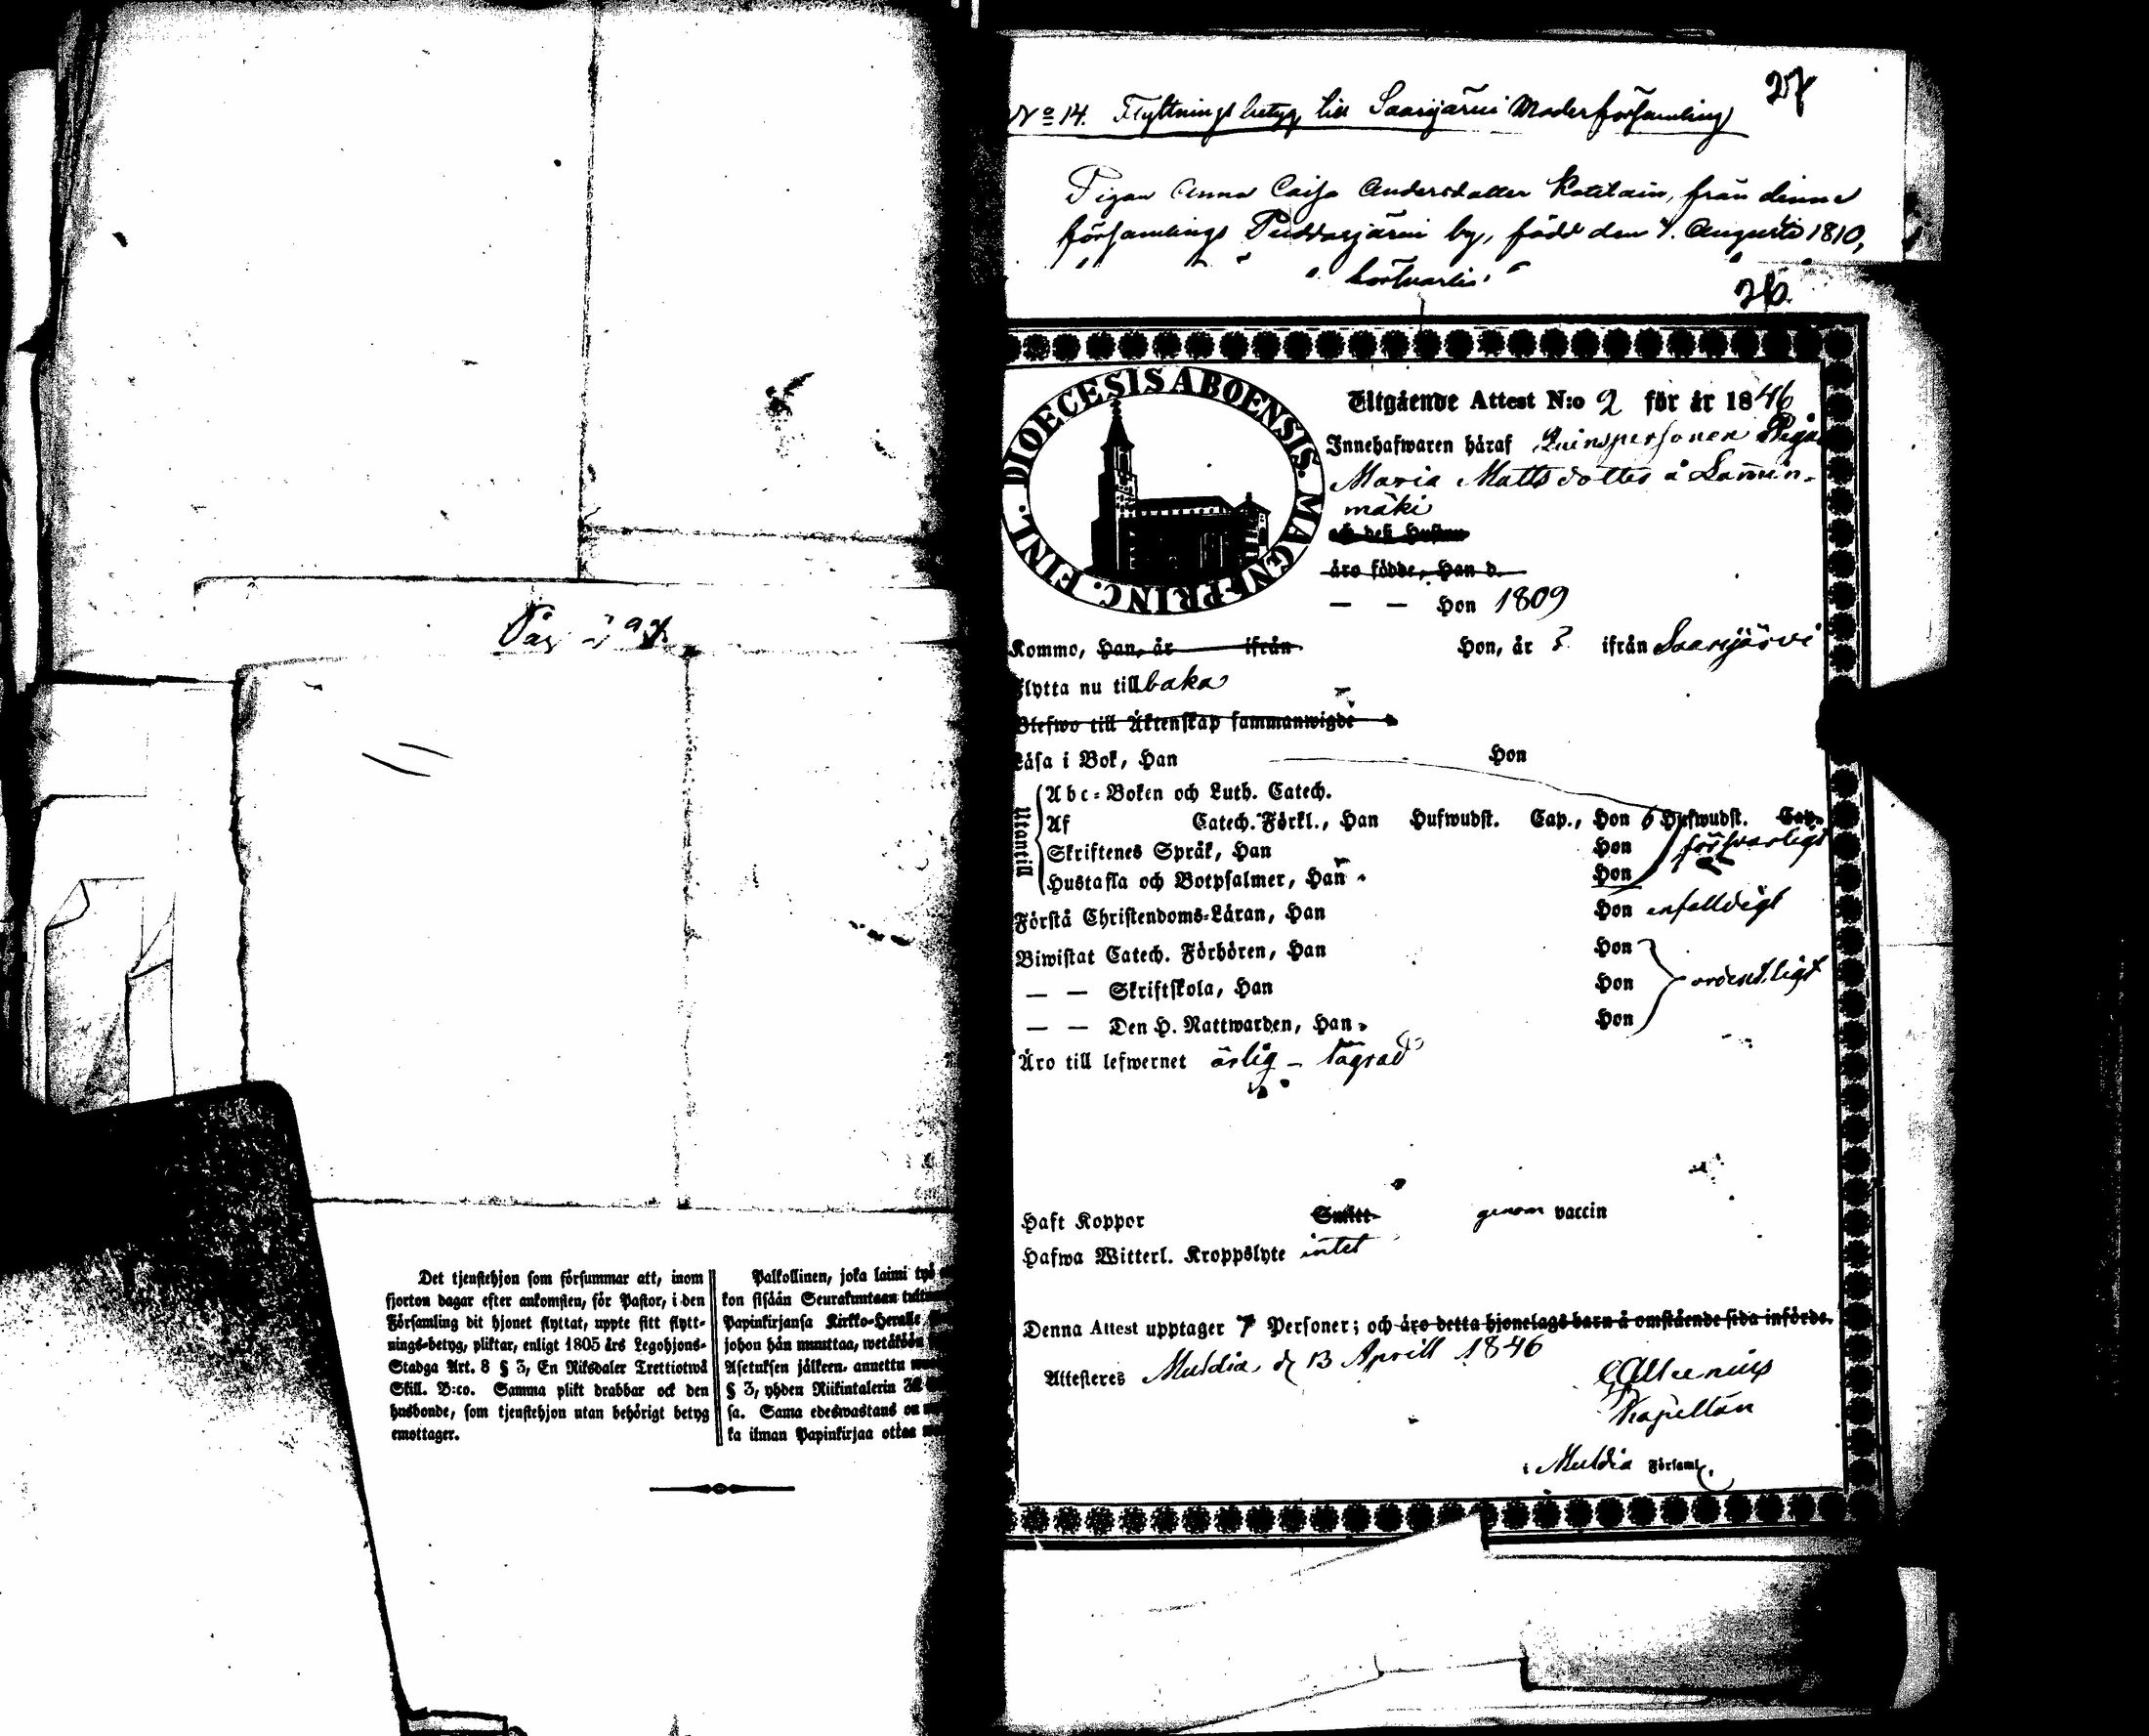 Pag. 297.
Det tjenstehjon som försummar att, inom
fjorton dagar efter ankomsten, för Pastor, i den
Församling dit hjonet flyttat, uppte sitt flytt-
nings-betyg, pliktar, enligt 1805 års Legohjons-
Stadga Art. 8 § 3, En Riksdaler Trettiotwå
Skill. B:co. Samma plikt drabbar ock den
husbonde, som tjenstehjon utan behörigt betyg
emottager.
Palkollinen, joka laimi
kon sisään Seurakuntaan
Papinkirjansa Kirkko-Herralle
johon hän muuttaa, wetäköön
Asetuksen jälkeen, annettu
§ 3, yhden Riikintalerin 32
sa. Sama edeswastaus on
ka ilman Papinkirjaa ottaa
27
No 14. Flyttningsbetyg till Saarijärvi Moderförsamling
Pigan Anna Caisa Andersdotter från denna
församlings by, född den 4. Augusti 1810,
26.
DIOECESIS ABOENSIS. MAGN. PRINC. FINL.
Utgående Attest N:o 2 för år 1846
Innehafwaren häraf Qvinspersonen Pigan
Maria Mattsdotter å Lamin-
mäki
och deß Hustru
äro födde, Han d.
— — Hon 1809
Kommo, Han, år ifrån Hon, år ? ifrån Saarijärvi
Flytta nu tillbaka
Blefwo till Äktenskap sammanwigde
Läsa i Bok, Han Hon
Utantill
Abc-Boken och Luth. Catech.
Af Catech. Förkl., Han Hufwudst. Cap., Hon 6 Hufwudst. Cap.
Skriftenes Språk, Han Hon försvarligt
Hustafla och Botpsalmer, Han Hon
Förstå Christendoms-Läran, Han Hon enfalldigt
Biwistat Catech. Förhören, Han Hon
— — Skriftskola, Han Hon ordentligt
— — Den H. Nattwarden, Han Hon
Äro till lefwernet ärlig -
Haft Koppor Smitt genom vaccin
Hafwa Witterl. Kroppslyte intet
Denna Attest upptager 1 Personer; och äro detta hjonelags barn å omstående sida införde.
Attesteres Muldia d 13 Aprill 1846
Kapellan
i Muldia Församl.